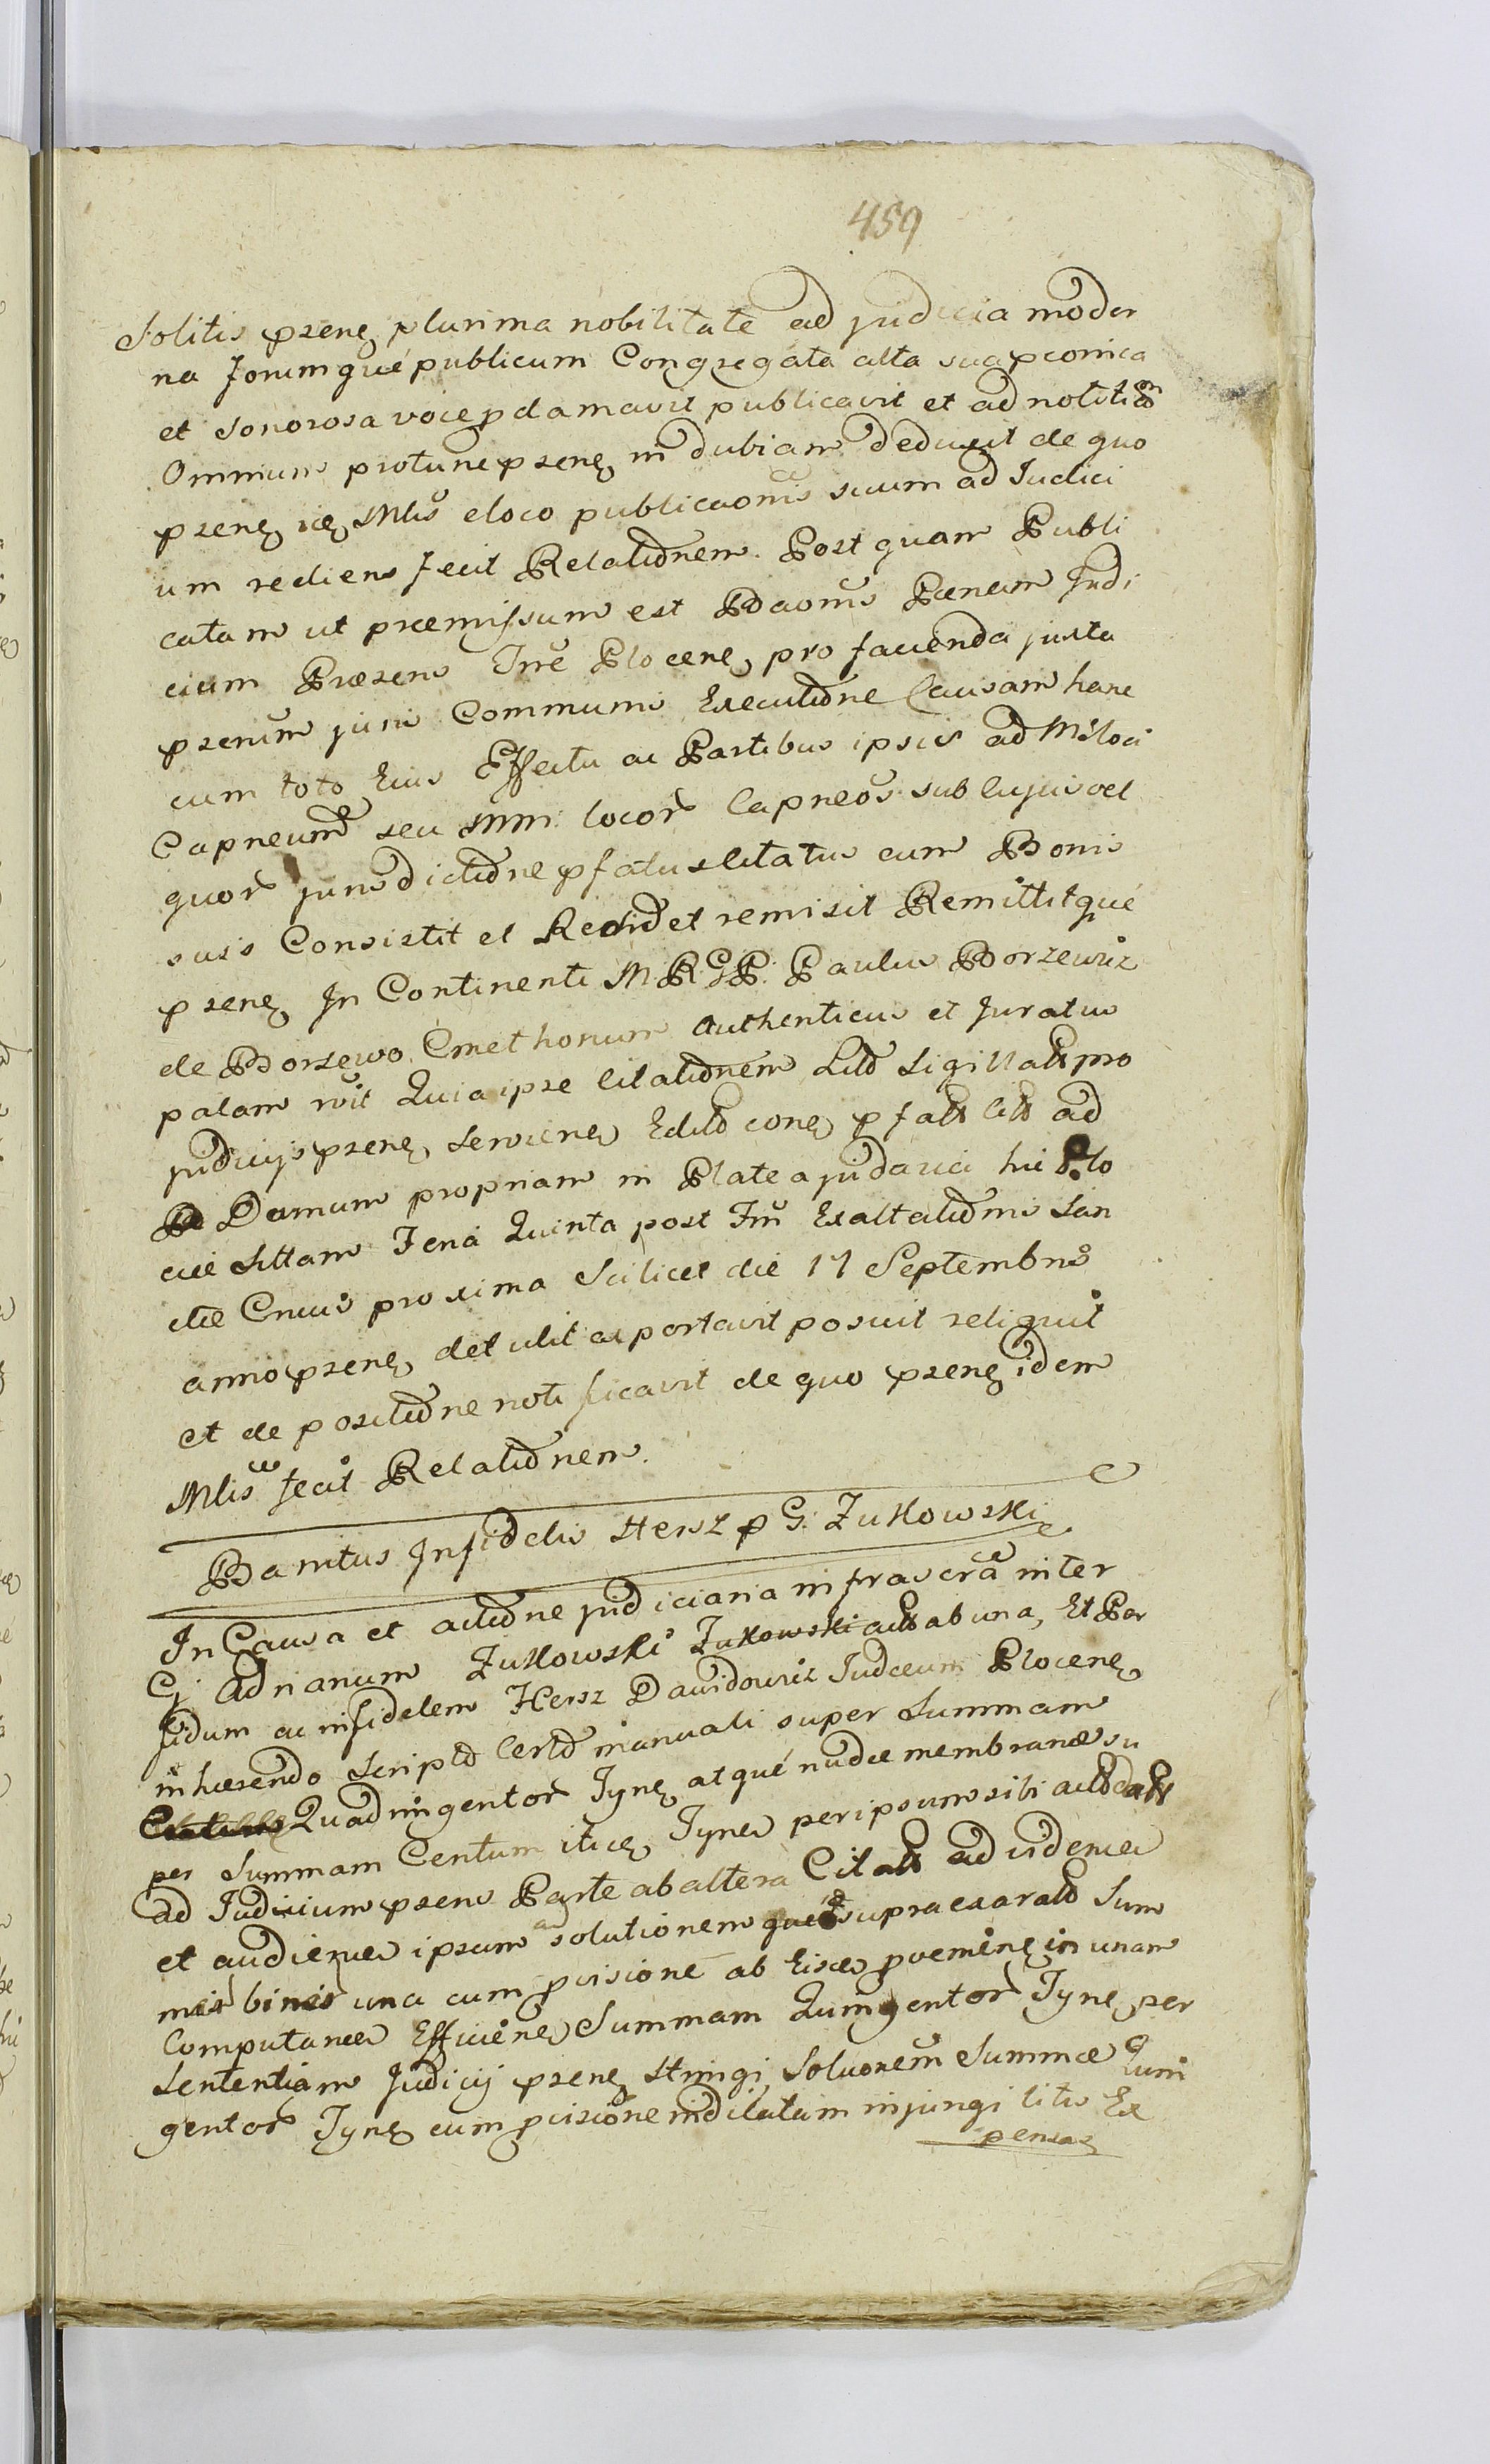 459
Solitis prſenꝫ plurima nobilitate ad judicia moder
na forumque publicum Congregata alta sua pconica
et sonorosa voce pclamavit publicavit et ad notitiam
Omnium protunc prſenꝫ in dubiam deduxit de quo
prſenꝫ icꝫ Mlis eloco publicaonis suum ad Iudici
um rediens fecit Relationem. Postquam Publi
catam ut præmissum est Baonis Pænam Judi
cium Præsens Trre Plocenꝫ pro facienda juxta
prſentm juris Communis Executione Causam hanc
cum toto Eius Effectu ac Partibus ipsis ad M loci
Capneum seu Mm locor Capneos sub cujus vel
quor jurisdictione pfatus Citatus cum Bonis
suis Consistit et Residet remisit Remittitque
prſenꝫ In Continenti M.R.G.P. Paulus Borzewicz
de Borzewo Cmethonum Authenticus et Juratus
palam rcit Quia ipse Citationem Litto Sigillatt pro
judicijs prſenꝫ Servienꝫ Edito conꝫ pfatt Citt ad
Domum propriam in Platea judaica hic Plo
ciæ Sittam Feria Quinta post Ftm Exaltationis San
ctæ Crucis proxima Scilicet die 17 Septembris
anno prſenꝫ detulit asportavit posuit reliquit
et de positione notificavit de quo prſenꝫ idem
Mlis fecit Relationem.
Banitus Infidelis Hersz p G. Zukowski
In Causa et actione judiciaria infrascra inter
G. Adrianum Zukowski Zukowski actt ab una, Et Per
fidum ac infidelem Hersz Dawidowicz Judæum Plocenꝫ
inhærendo Scripto Certo manuali super Summam
Quadringentor Tynꝫ atque nudæ membranæ su
per Summam Centum iticꝫ Tynꝫ per ipsum sibi actt datt
ad Iudicium prſens Parte ab altera Citatt ad videnꝫ
et audienꝫ ipsum ad solutionem supraexaratt Sum
mar binar una cum pvisione ab Eisꝫ pvenienꝫ in unam
Computanꝫ Efficienꝫ Summam Quingentor Tynꝫ per
Sententiam Judicij prſenꝫ Stringi Soluonem Summæ Quin
gentor Tynꝫ cum pvisione indilatam injungi litis Ex
pensas